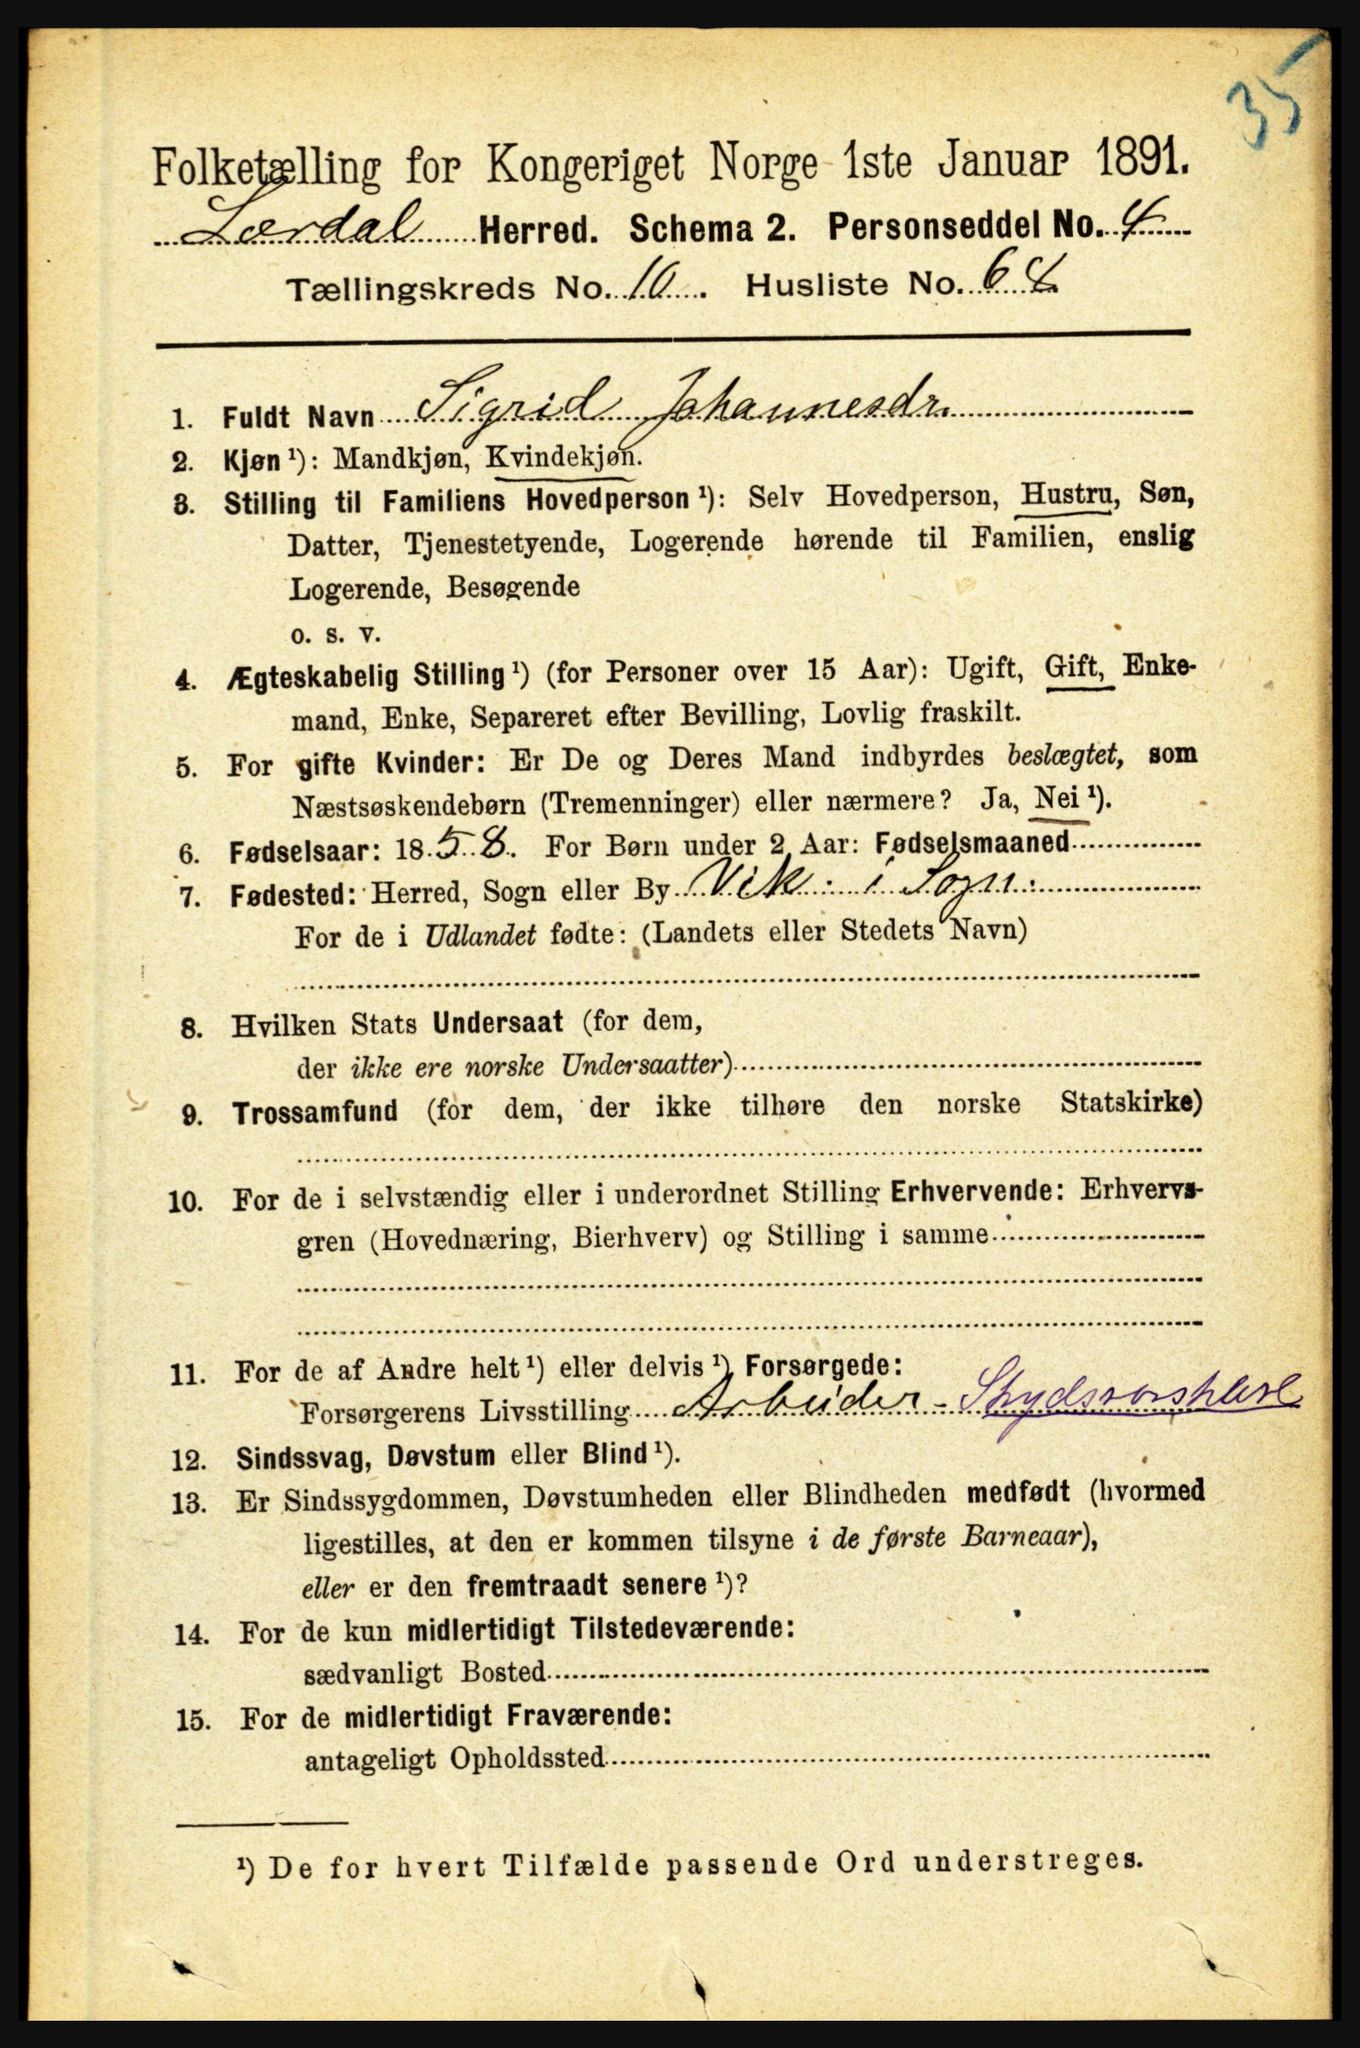 35
Folketælling for Kongeriget Norge 1ste Januar 1891.
Lærdal Herred. Schema 2. Personseddel No. 4
Tællingskreds No. 10. Husliste No. 64
1. Fuldt Navn Sigrid Johannesdr.
2. Kjøn ¹): Mandkjøn, Kvindekjøn.
3. Stilling til Familiens Hovedperson ¹): Selv Hovedperson, Hustru, Søn,
Datter, Tjenestetyende, Logerende hørende til Familien, enslig
Logerende, Besøgende
o. s. v.
4. Ægteskabelig Stilling ¹) (for Personer over 15 Aar): Ugift, Gift, Enke-
mand, Enke, Separeret efter Bevilling, Lovlig fraskilt.
5. For gifte Kvinder: Er De og Deres Mand indbyrdes beslægtet, som
Næstsøskendebørn (Tremenninger) eller nærmere? Ja, Nei ¹).
6. Fødselsaar: 1858. For Børn under 2 Aar: Fødselsmaaned
7. Fødested: Herred, Sogn eller By Vik i Sogn
For de i Udlandet fødte: (Landets eller Stedets Navn)
8. Hvilken Stats Undersaat (for dem,
der ikke ere norske Undersaatter)
9. Trossamfund (for dem, der ikke tilhøre den norske Statskirke)
10. For de i selvstændig eller i underordnet Stilling Erhvervende: Erhvervs-
gren (Hovednæring, Bierhverv) og Stilling i samme
11. For de af Andre helt ¹) eller delvis ¹) Forsørgede:
Forsørgerens Livsstilling Arbeider -
12. Sindssvag, Døvstum eller Blind ¹).
13. Er Sindssygdommen, Døvstumheden eller Blindheden medfødt (hvormed
ligestilles, at den er kommen tilsyne i de første Barneaar),
eller er den fremtraadt senere ¹)?
14. For de kun midlertidigt Tilstedeværende:
sædvanligt Bosted
15. For de midlertidigt Fraværende:
antageligt Opholdssted
¹) De for hvert Tilfælde passende Ord understreges.